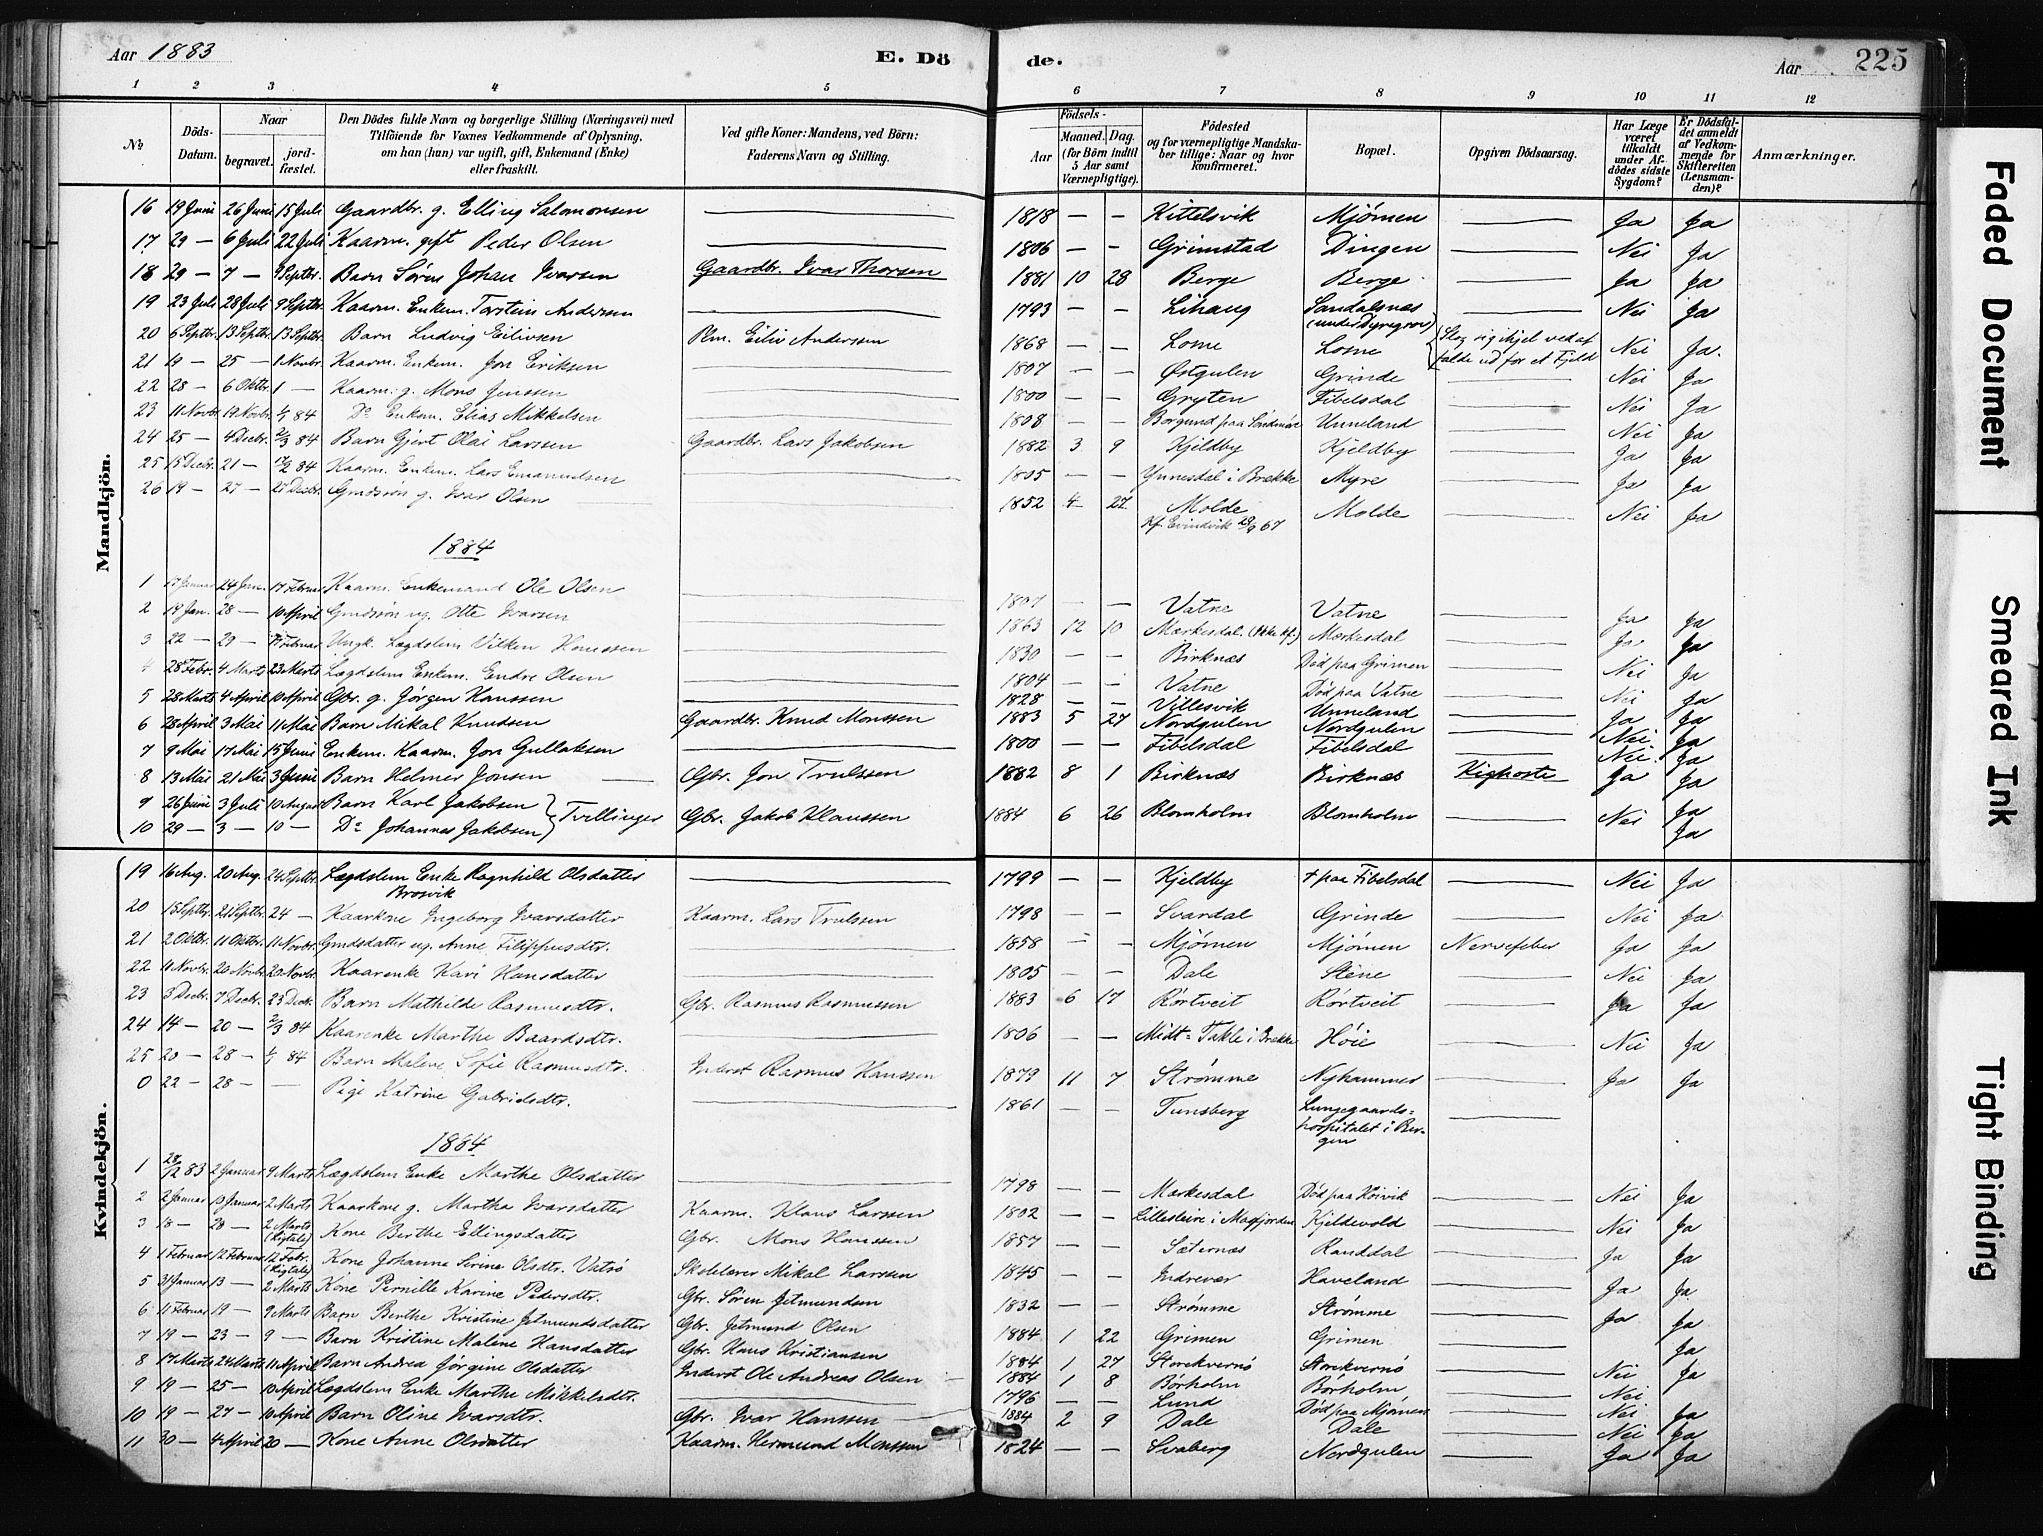 Aar 1883 E. Döde. Aar 225
1 2 3 4 5 6 7 8 9 10 11 12
№
Döds-Datum.
Naar
begravet.
jordfæstet.
Den Dödes fulde Navn og borgerlige Stilling (Næringsvei) med
Tilföiende for Voxnes Vedkommende af Oplysning,
om han (hun) var ugift, gift, Enkemand (Enke)
eller fraskilt.
Ved gifte Koner: Mandens, ved Börn:
Faderens Navn og Stilling.
Födsels-
Aar
Maaned. Dag.
(for Börn indtil
5 Aar samt
Værnepligtige).
Födested
og for værnepligtige Mandska-
ber tillige: Naar og hvor
konfirmeret.
Bopæl.
Opgiven Dödsaarsag.
Har Læge
været
tilkaldt
under Af-
dödes sidste
Sygdom?
Er Dödsfal-
det anmeldt
af Vedkom-
mende for
Skifteretten
(Lensman-
den)?
Anmærkninger.
Mandkjön.
16 19 Juni 26 Juni 15 Juli Gaardbr. g. Elling Salomonsen — 1818 — — Kittelsvik Mjömen — Ja Ja
17 29 — 6 Juli 22 Juli Kaarm. gift Peder Olsen — 1806 — — Grimstad Dingen — Nei Ja
18 29 — 7 — 9 Septbr. Barn Søren Johan Ivarsen Gaardbr. Ivar Thorsen 1881 10 28 Berge Berge — Ja Ja
19 23 Juli 28 Juli 9 Septbr. Kaarm. Enkem. Torstein Andersen — 1793 — — Lihaug Sandalsnæs (under Dyregrov) — Nei Ja
20 6 Septbr. 13 Septbr. 13 Septbr. Barn Ludvig Eilivsen Plm. Eiliv Andersen 1868 Losne Losne Slog sig ihjel ved at falde ud for et Fjeld Nei Ja.
21 19 — 25 — 1 Novbr. Kaarm. Enkem. Jon Eriksen — 1807 — — Østgulen Grinde — Nei Ja
22 28 — 6 Oktbr. 1 — Kaarm. g. Mons Jenssen — 1800 — — Gryten Fibelsdal — Nei Ja
23 11 Novbr. 19 Novbr. 1/1 84 Do Enkem. Elias Mikkelsen — 1808 — — Borgund paa Söndmör Unneland — Nei Ja
24 25 — 4 Decbr. 2/3 84 Barn Gjert Olai Larssen Gaardbr. Lars Jakobsen 1882 3 9 Kjeldby Kjeldby — Ja Ja
25 15 Decbr. 21 — 17/2 84 Kaarm. Enkem. Lars Emanuelsen — 1805 — — Ynnesdal i Brække Myre — Ja Ja
26 19 — 27 — 27 Decbr. Gmdsøn g. Ivar Olsen — 1852 4 27 Molde Molde — Nei Ja
Kf. Evindvik 29/9 67
1884
1 17 Januar 24 Jan. 17 Februar Kaarm. Enkemand Ole Olsen — 1807 — — Vatne Vatne — Ja Ja
2 19 Jan. 28 — 10 April Gmdsøn ug. Otte Ivarsen — 1863 12 10 Mærkesdal. (Ikke kf.) Mærkesdal — Ja Ja
3 22 — 29 — Februar Ungk. Lægdslem Vilken Hanssen — 1830 — — Birknæs Död paa Grimen — Nei Ja
4 28 Febr. 4 Marts 23 Marts Lægdslem Enkem. Endre Olsen — 1804 — — Vatne Död paa Vatne — Nei Ja
5 28 Marts 4 April 10 April Gbr. g. Jörgen Hanssen — 1828 — — Villesvik Unneland — Ja Ja
6 28 April 3 Mai 11 Mai Barn Mikal Knudsen Gaardbr. Knud Monssen 1883 5 27 Nordgulen Nordgulen — Nei Ja
7 9 Mai 17 Mai 15 Juni Enkem. Kaarm. Jon Gullaksen — 1800 — — Fibelsdal Fibelsdal — Nei Ja
8 13 Mai 21 Mai 3 Juni Barn Helmer Jonsen — Gbr. Jon Trulssen 1882 8 1 Birknæs Birknæs Kighoste Ja Ja
9 26 Juni 3 Juli 10 August Barn Karl Jakobsen Tvillinger Gbr. Jakob Klaussen 1884 6 26 Blomholm Blomholm — Nei Ja
10 29 — 3 — 10 — Do Johannes Jakobsen Ja
Kvindekjön.
19 16 Aug. 20 Aug. 24 Septbr. Lægdslem Enke Ragnhild Olsdatter Brosvik — 1799 — — Kjeldby † paa Fibelsdal — Nei Ja
20 15 Septbr. 21 Septbr. 24 — Kaarkone Ingeborg Ivarsdatter Kaarm. Lars Trulssen 1798 — — Svardal Grinde — Nei Ja
21 2 Oktbr. 11 Oktbr. 11 Novbr. Gmdsdatter ug. Anne Filippusdtr. — 1858 — — Mjömen Mjömen Nervefeber Ja Ja
22 11 Novbr. 20 Novbr. 20 Novbr. Kaarenke Kari Hansdatter — 1805 — — Dale Stene — Nei Ja
23 3 Decbr. 7 Decbr. 23 Decbr. Barn Mathilde Rasmusdtr. Gbr. Rasmus Rasmussen 1883 6 17 Rörtveit Rörtveit — Ja Ja
24 14 — 20 — 2/3 84 Kaarenke Marthe Baardsdtr. — 1806 — — Midt=Takle i Brække Høie — Nei Ja
25 20 — 28 — 1/1 84 Barn Malene Sofie Rasmusdtr. Inderst Rasmus Hanssen 1879 11 7 Strømme Nyhammer — Ja Ja
0 22 — 28 — — Pige Katrine Gabrielsdtr. — 1861 — — Tunsberg Lungegaards=hospitalet i Bergen —
1884
1 28/12 83 2 Januar 9 Marts Lægdslem Enke Marthe Olsdatter — 1798 — — Mærkesdal Död paa Höivik — Nei Ja
2 2 Januar 13 Januar 2 Marts Kaarkone g. Martha Ivarsdatter Kaarm. Klaus Larssen 1802 — — Lillesleire i Masfjorden Kjeldevold — Nei Ja
3 18 — 28 — 2 Marts (Rigtale) Kone Berthe Ellingsdatter Gbr. Mons Hanssen 1857 — — Sæternæs Randdal — Ja Ja
4 1 Februar 12 Februar 12 Febr. (Ligtale) Kone Johanne Serine Olsdtr. Vatsö Skolelærer Mikal Larssen 1845 — — Indrevær Haveland — Ja Ja
5 31 Januar 13 — 2 Marts Kone Pernille Karine Pedersdtr. Gbr. Sören Jetmundsen 1832 — — Strömme Strömme — Ja Ja
6 11 Februar 19 — 9 Marts Barn Berthe Kristine Jetmundsdatter Gbr. Jetmund Olsen 1884 1 22 Grimen Grimen — Ja
7 19 — 23 — 9 — Barn Kristine Malene Hansdatter Gbr. Hans Kristiansen 1884 1 27 Storekvernö Storekvernö — Nei Ja
8 17 Marts 24 Marts 11 April Barn Andrea Jörgine Olsdatter Inderst Ole Andreas Olsen 1884 1 8 Börholm Börholm — Nei
9 19 — 25 — 10 April Lægdslem Enke Marthe Mikkelsdtr. — 1796 — — Lund Död paa Mjömen — Nei Ja
10 19 — 27 — 10 April Barn Oline Ivarsdtr. Gbr. Ivar Hanssen 1884 2 9 Dale Dale — Nei Ja
11 30 — 4 April 20 — Kone Anne Olsdatter Kaarm. Hermund Monssen 1824 — — Svaberg Nordgulen — Ja Ja
Faded Document
Smeared Ink
Tight Binding